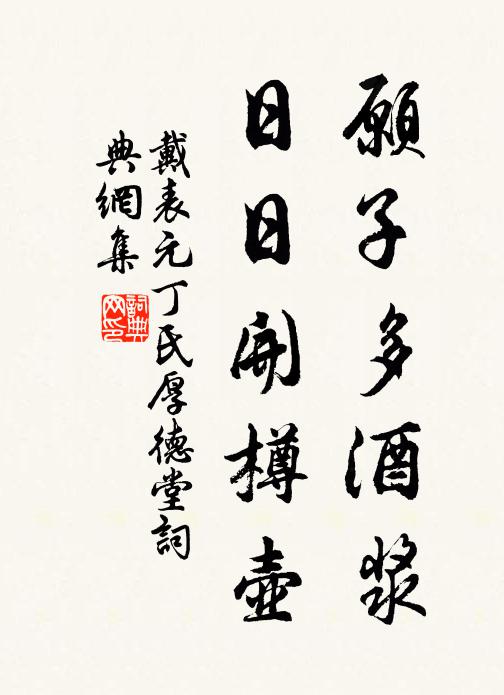 願子多酒漿
日日開樽壺
戴表元丁氏厚德堂詞
典網集
詞典
网印